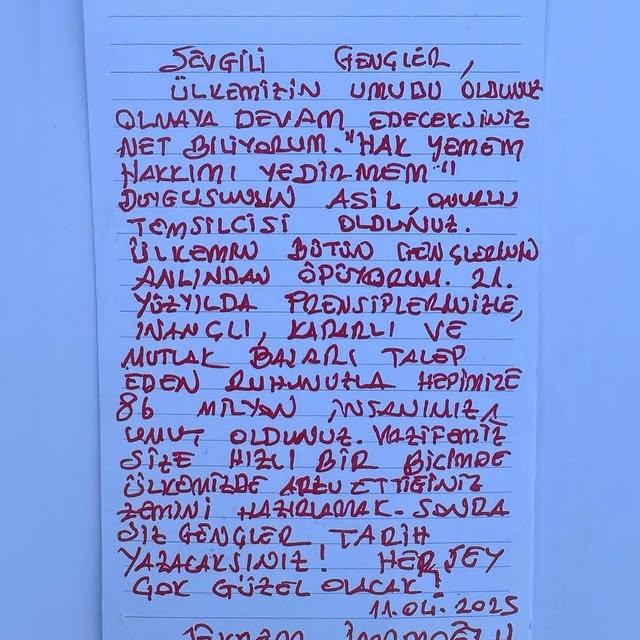 SEVGİLİ GENÇLER,
ÜLKEMİZİN UMUDU OLDUNUZ
OLMAYA DEVAM EDECEKSİNİZ
NET BİLİYORUM. "HAK YEMEM
HAKKIMI YEDİRMEM"
DUYGUSUNUN ASİL, ONURLU
TEMSİLCİSİ OLDUNUZ.
ÜLKEMİN BÜTÜN GENÇLERİNİN
ANLINDAN ÖPÜYORUM. 21.
YÜZYILDA PRENSİPLERİNİZLE,
İNANÇLI, KARARLI VE
MUTLAK BAŞARI TALEP
EDEN RUHUNUZLA HEPİMİZE
86 MİLYON İNSANIMIZA
UMUT OLDUNUZ. VAZİFEMİZ
SİZE HIZLI BİR BİÇİMDE
ÜLKEMİZDE ARZU ETTİĞİNİZ
ZEMİNİ HAZIRLAMAK. SONRA
SİZ GENÇLER TARİH
YAZACAKSINIZ! HER ŞEY
ÇOK GÜZEL OLACAK!
11.04.2025
EKREM İMAMOĞLU